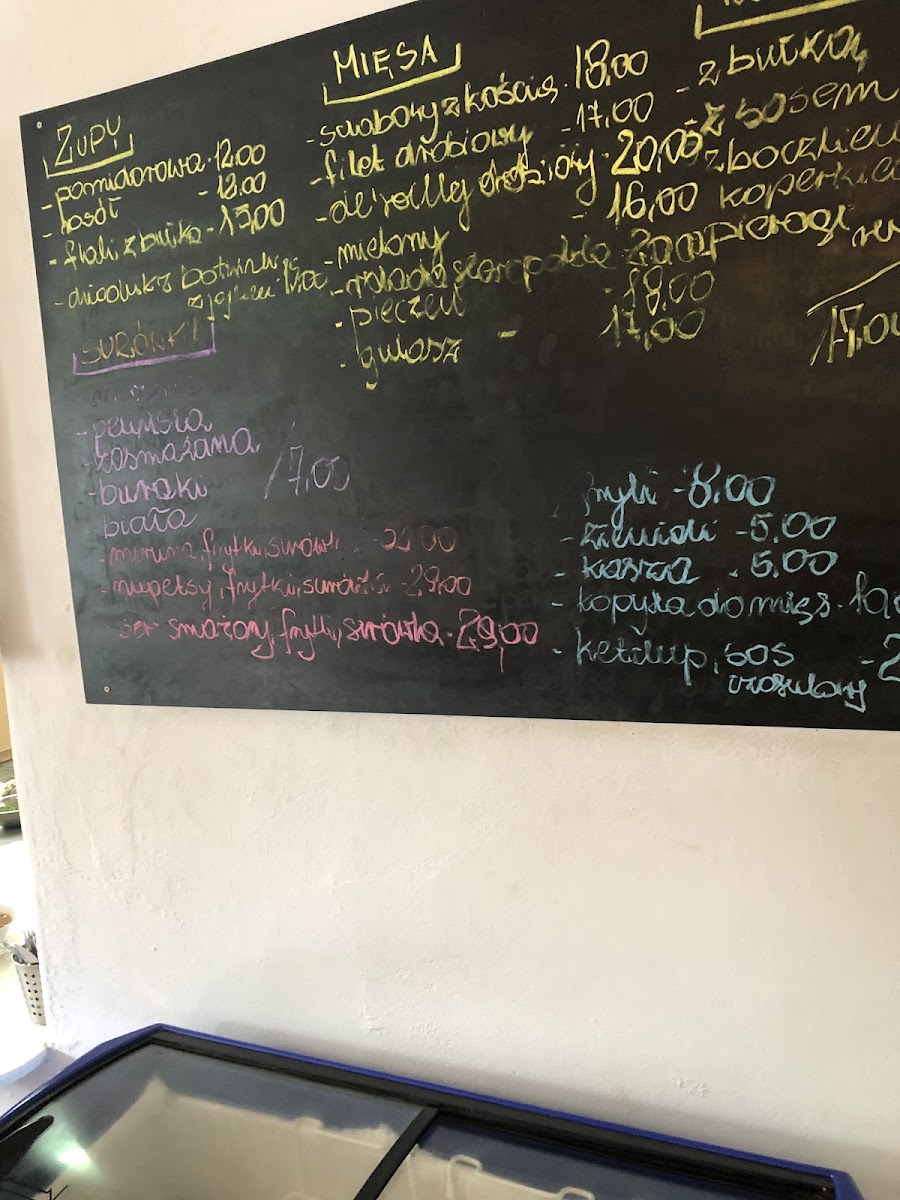 ZUPY
- pomidorowa - 12.00
- rosół - 12.00
- flaki z bułką - 15,00
z jajkiem
MIĘSA
- schabowy z kością - 18,00
- filet drobiowy - 17,00
- de'vollay drobiowy - 20,00
- mielony - 16,00
- rolada staropolska
- pieczeń - 18,00
- gulasz - 17,00
- z bułką
- z sosem
- z boczkiem
koperkiem
pierogi
17,00
SURÓWKI
- pekińska
- zasmażana
- buraki
- biała
/7,00
- miruna, frytki, surówka
- nugetsy, frytki, surówka - 29,00
- ser smażony, frytki, surówka - 29,00
- frytki - 8.00
- ziemniaki - 5.00
- kasza - 5.00
- kopytka do mięs -
- ketchup, sos
czosnkowy